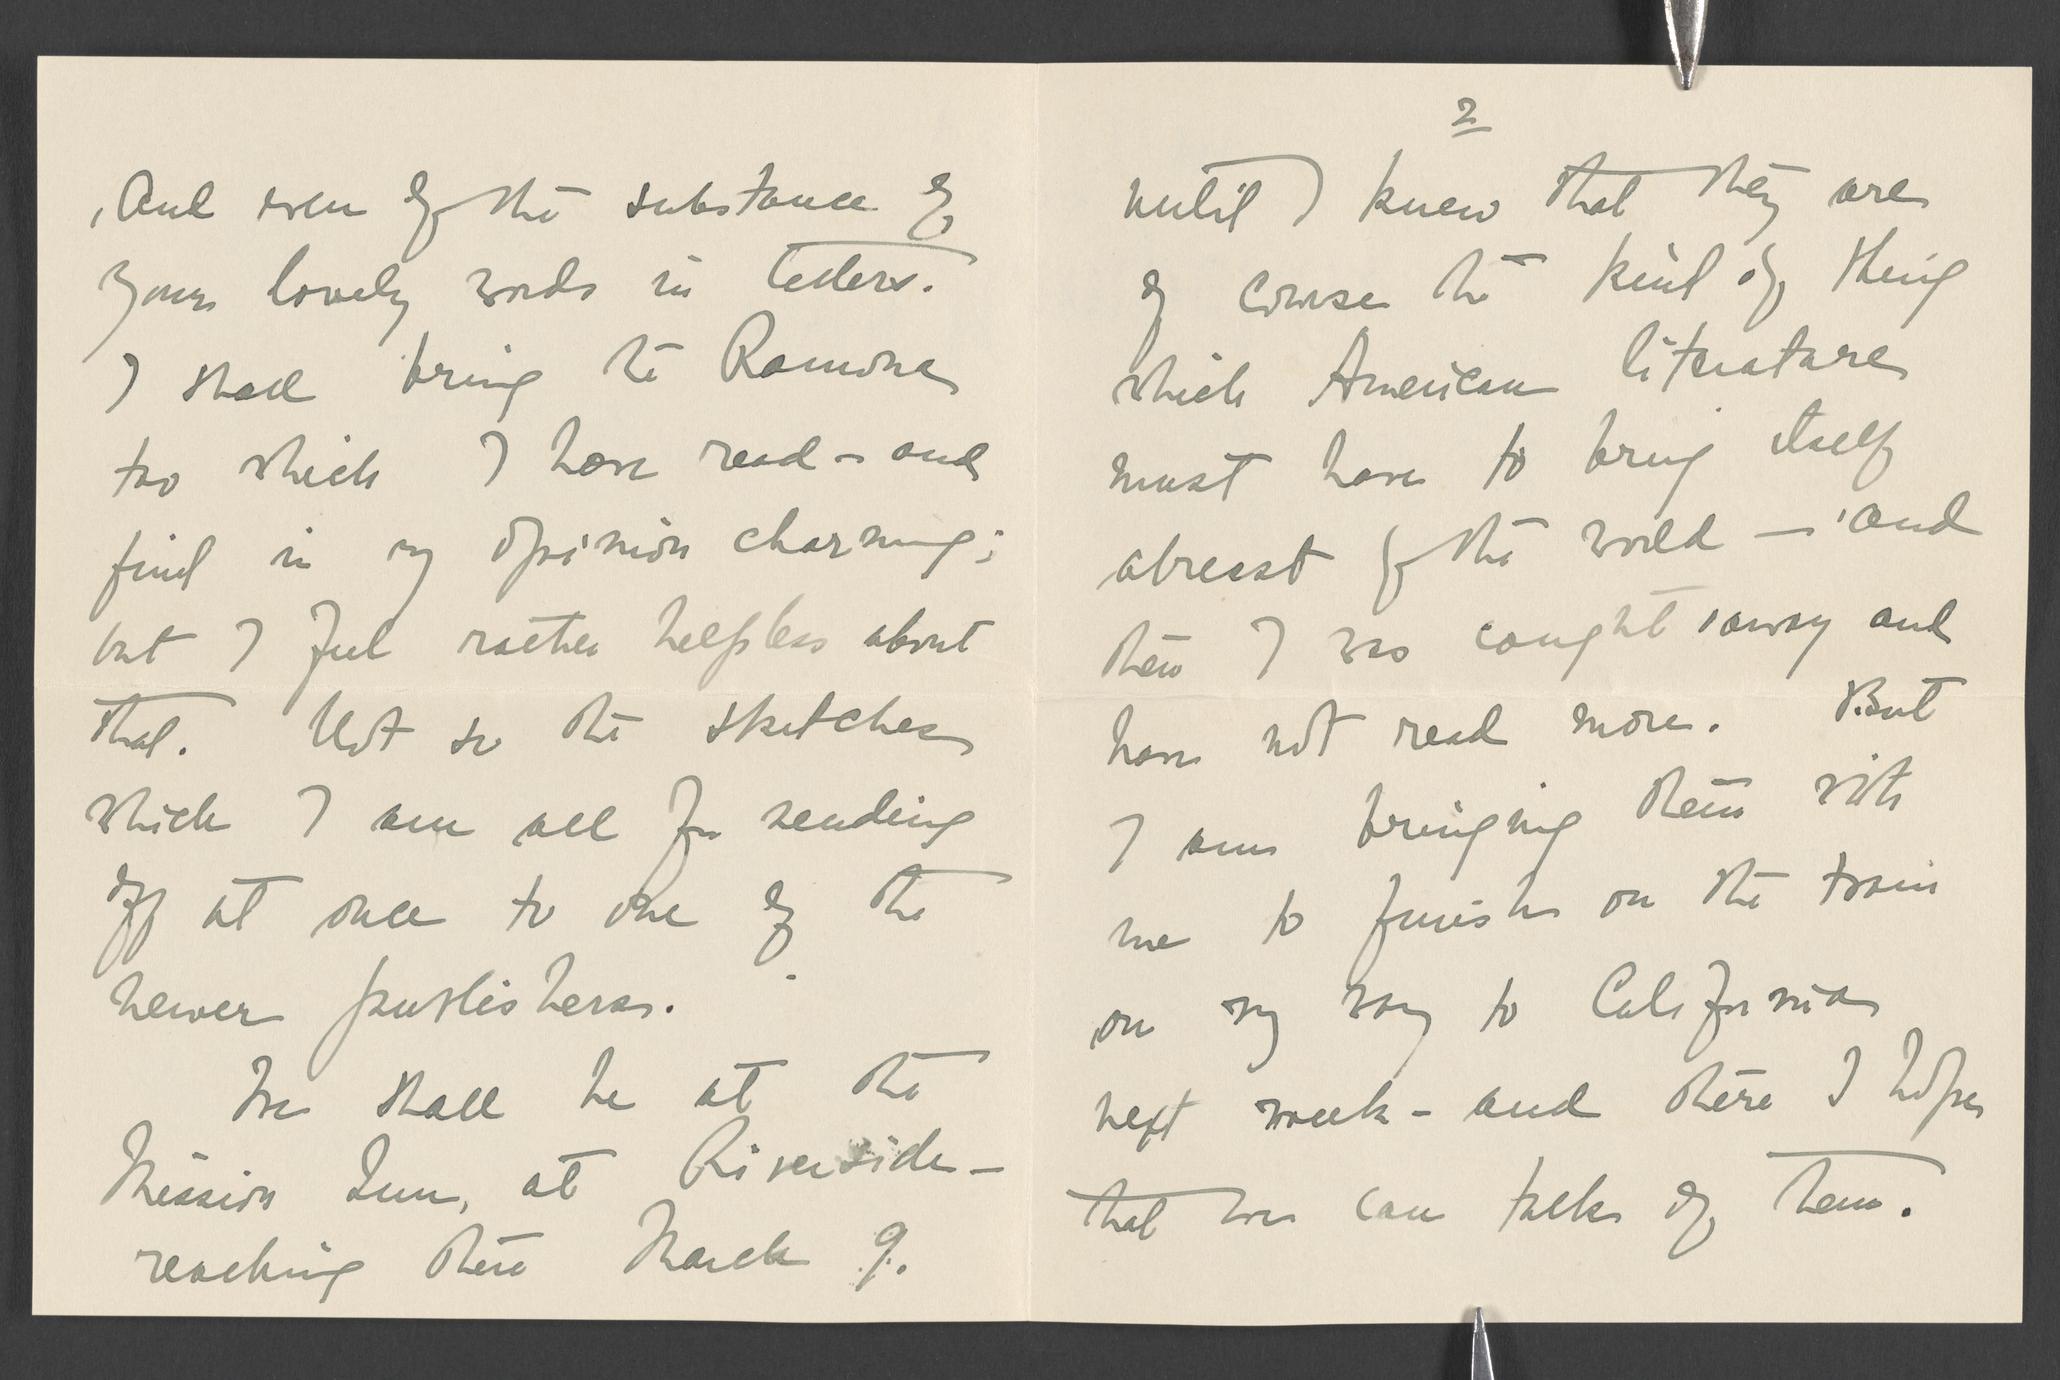 And even of the substance of
your lovely words in letters.
I shall bring the Ramona
too which I have read – and
find in my opinion charming;
but I feel rather helpless about
that. Not so the sketches
which I am all for sending
off at once to one of the
newer publishers.
We shall be at the
Mission Inn, at Riverside –
reaching there March 9.
2
until I knew that they are
of course the kind of thing
which American literature
must have to bring itself
abreast of the world – and
then I was caught away and
have not read more. But
I am bringing them with
me to finish on the train
on my way to California
next week – and there I hope
that we can talk of them.